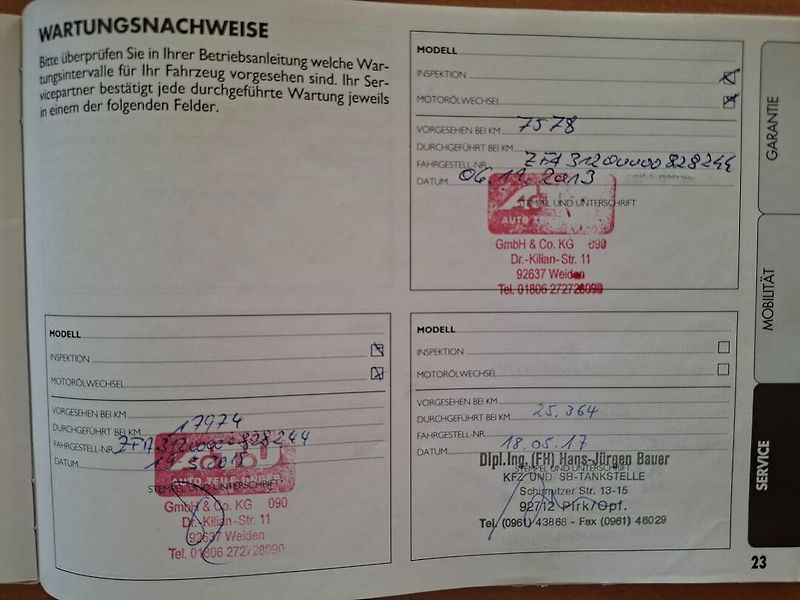 WARTUNGSNACHWEISE
Bitte überprüfen Sie in Ihrer Betriebsanleitung welche War-
tungsintervalle für Ihr Fahrzeug vorgesehen sind. Ihr Ser-
vicepartner bestätigt jede durchgeführte Wartung jeweils
in einem der folgenden Felder.
MODELL
INSPEKTION
MOTORÖLWECHSEL
VORGESEHEN BEI KM 7578
DURCHGEFÜHRT BEI KM
FAHRGESTELL-NR. ZFA31200000828244
DATUM 06.11.2013
STEMPEL UND UNTERSCHRIFT
AUTO
GmbH & Co. KG 090
Dr.-Kilian-Str. 11
92637 Weiden
Tel. 01806 272728090
MODELL
INSPEKTION
MOTORÖLWECHSEL
VORGESEHEN BEI KM
DURCHGEFÜHRT BEI KM 17974
FAHRGESTELL-NR. ZFA31200000828244
DATUM
STEMPEL UND UNTERSCHRIFT
GmbH & Co. KG 090
Dr.-Kilian-Str. 11
92637 Weiden
Tel. 01806 272728090
MODELL
INSPEKTION
MOTORÖLWECHSEL
VORGESEHEN BEI KM
DURCHGEFÜHRT BEI KM 25.364
FAHRGESTELL-NR.
DATUM 18.05.17
Dipl.Ing. (FH) Hans-Jürgen Bauer
STEMPEL UND UNTERSCHRIFT
KFZ UND SB-TANKSTELLE
Schirmitzer Str. 13-15
92712 Pirk/Opf.
Tel. (0961) 43868 - Fax (0961) 46029
GARANTIE
MOBILITÄT
SERVICE
23